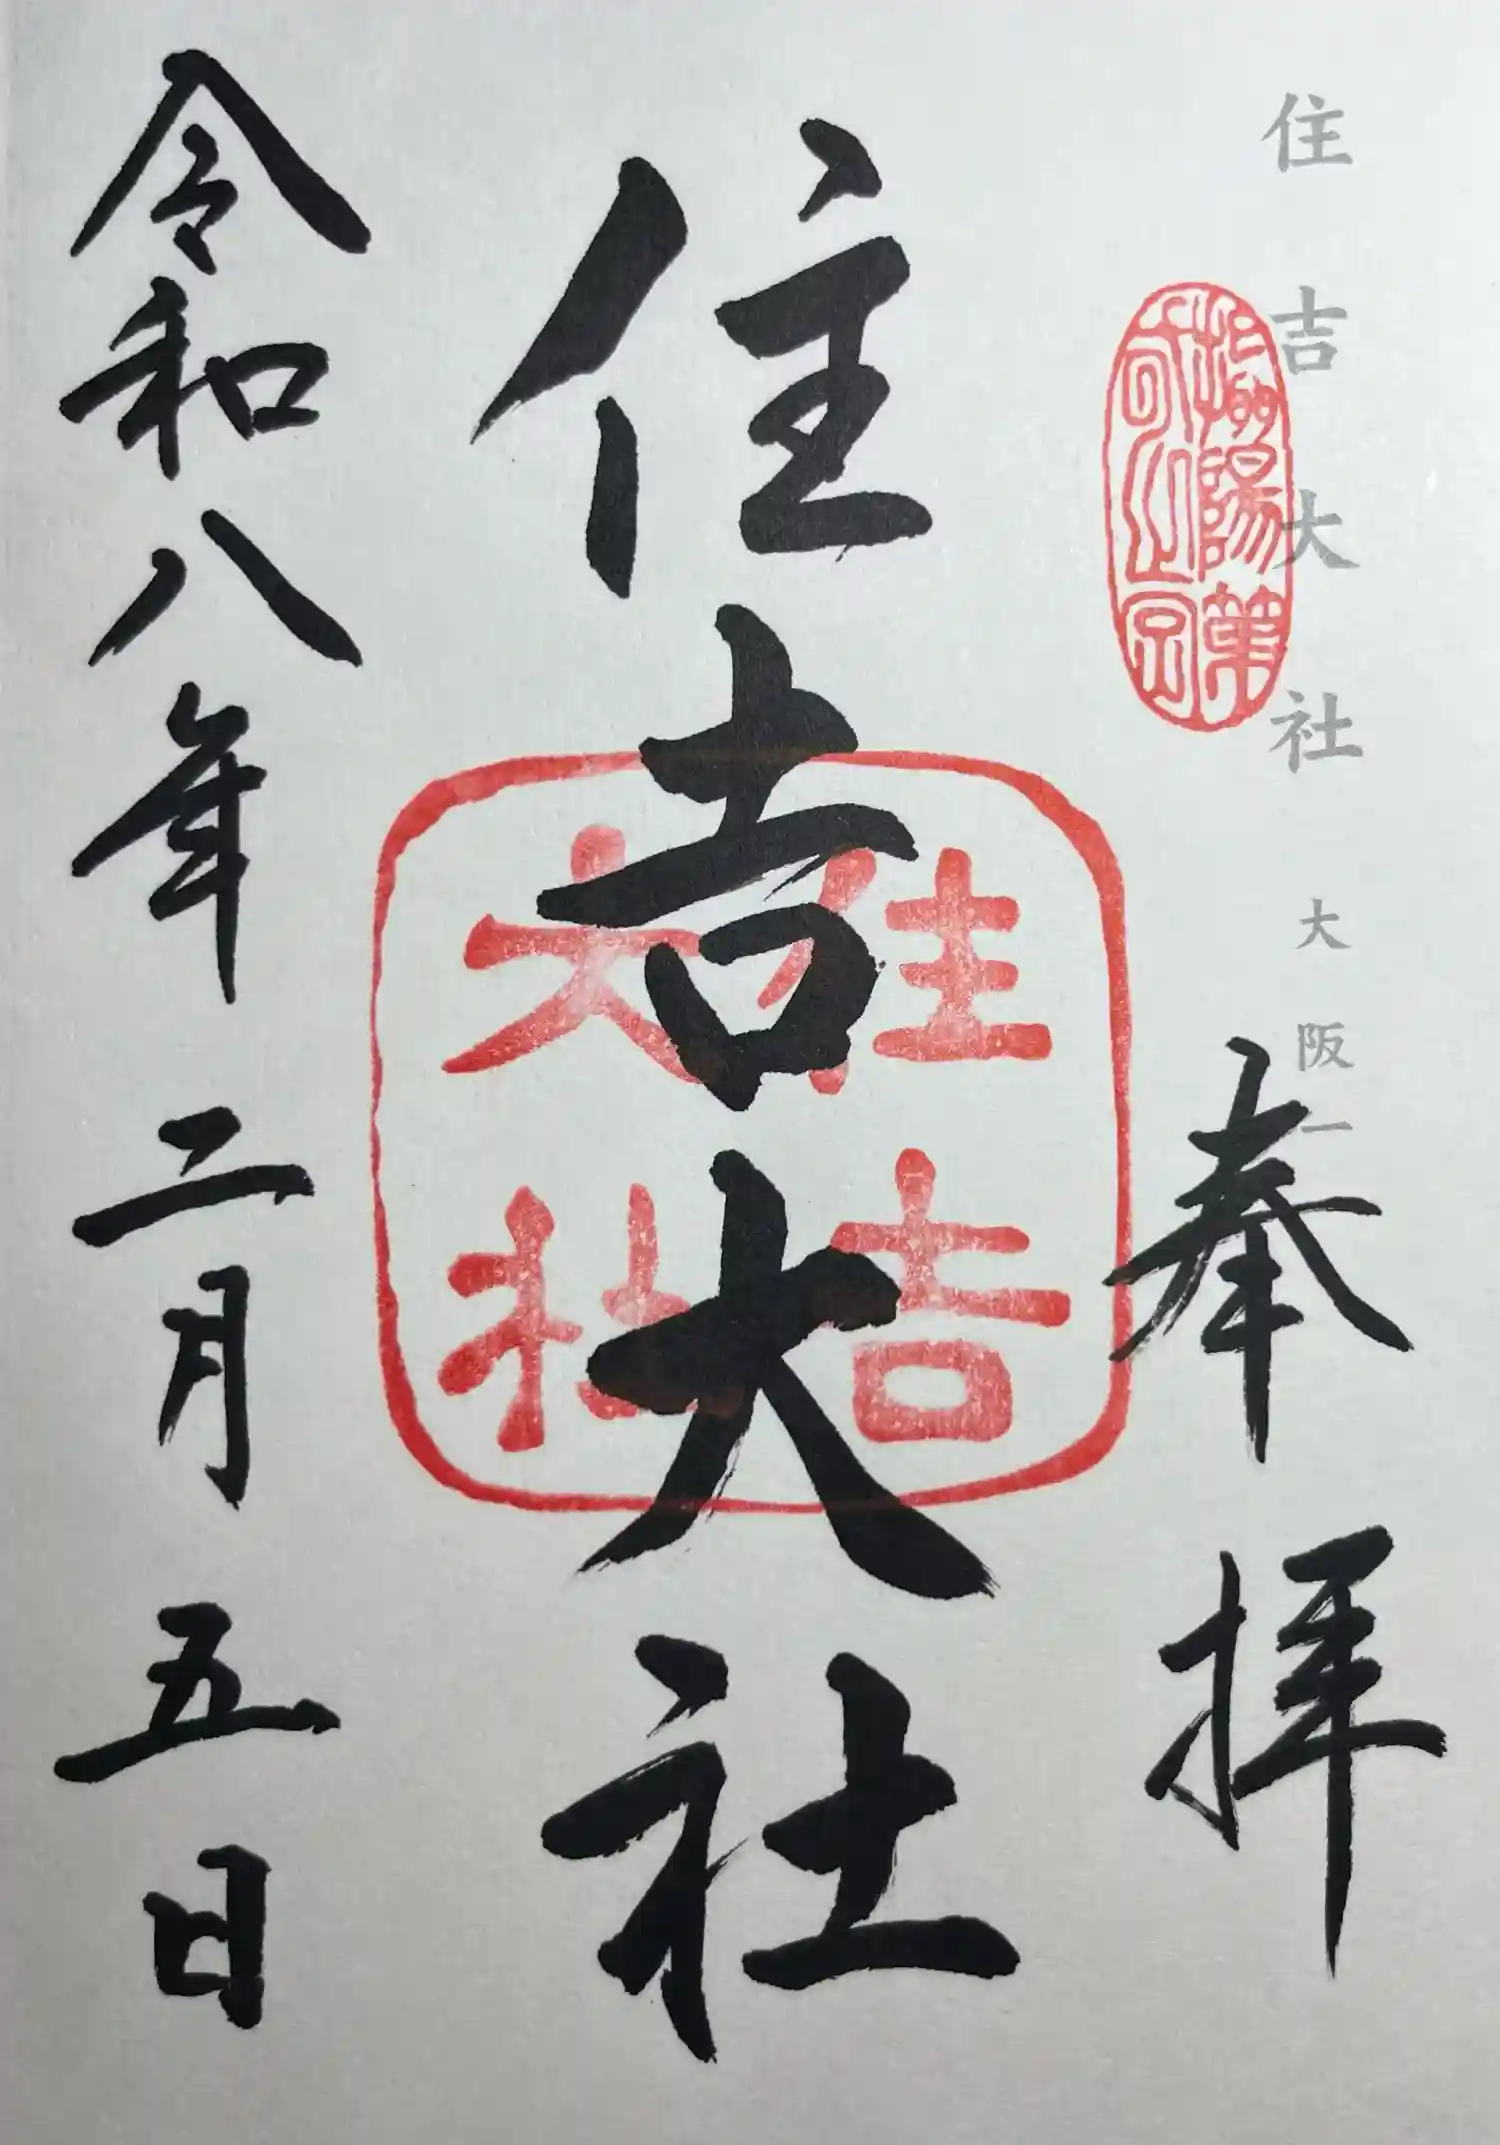 住吉大社 大阪一
奉拝
住吉大社
住吉
大社
令和八年二月五日